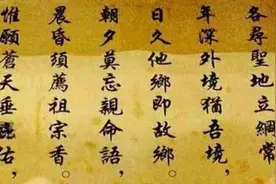 各尋聖地立綱常
年深外境猶吾境，
日久他鄉即故鄉。
朝夕莫忘親命語，
晨昏須薦祖宗香。
惟願蒼天垂庇佑，